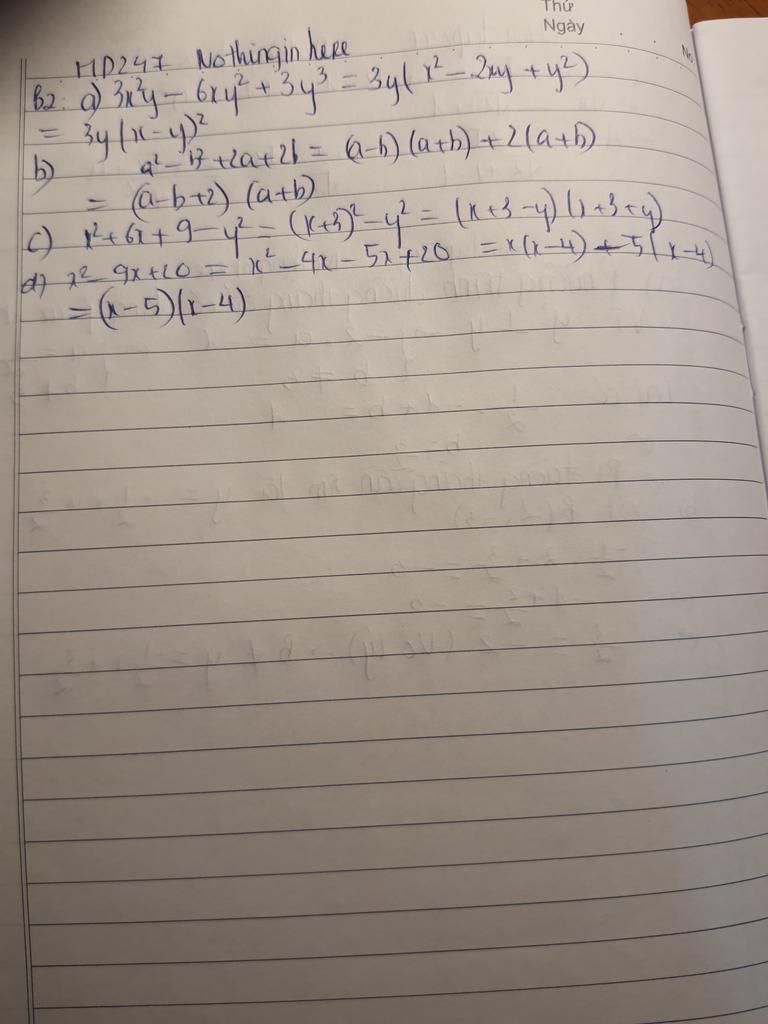 Thứ
Ngày
No
HD247 Nothingin here
B2: a) 3x²y - 6xy² + 3y³ = 3y(x² - 2xy + y²)
= 3y(x-y)²
b) a² - b² + 2a + 2b = (a-b)(a+b) + 2(a+b)
= (a-b+2)(a+b)
c) x² + 6x + 9 - y² = (x+3)² - y² = (x+3-y)(x+3+y)
d) x² - 9x + 20 = x² - 4x - 5x + 20 = x(x-4) - 5(x-4)
= (x-5)(x-4)